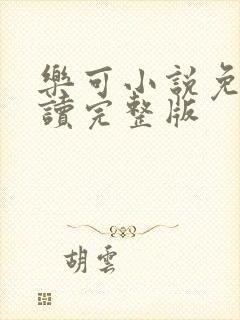 樂可小說免
讀完整版
胡雲